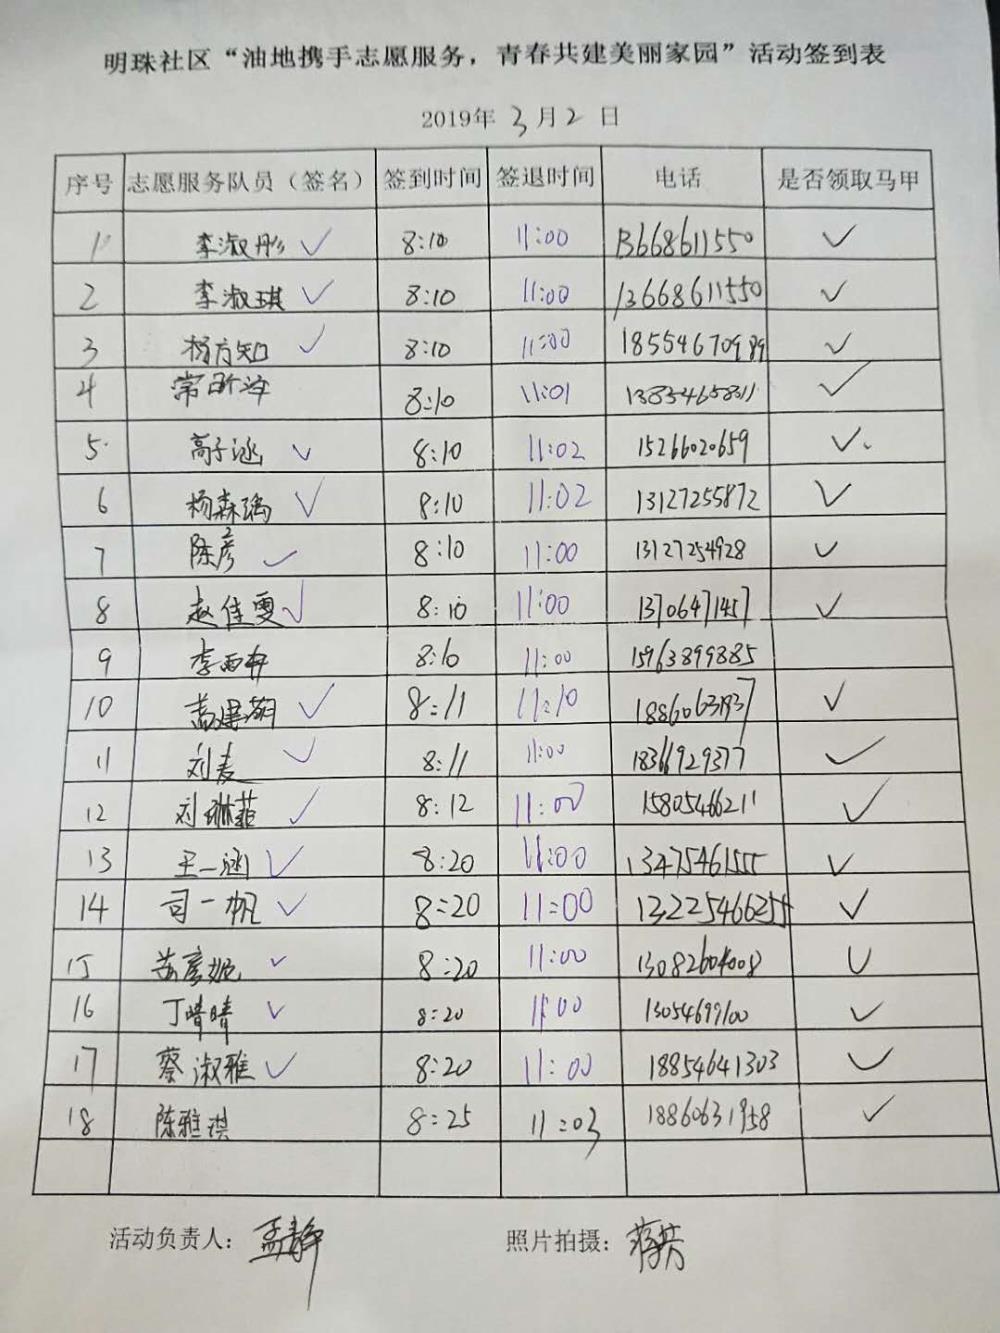 明珠社区“油地携手志愿服务，青春共建美丽家园”活动签到表
2019年 3月2日
序号 志愿服务队员（签名） 签到时间 签退时间 电话 是否领取马甲
1 李淑彤 ✓ 8:10 11:00 13668611550 ✓
2 李淑琪 ✓ 8:10 11:00 13668611550 ✓
3 杨方知 ✓ 8:10 11:00 18554670989 ✓
4 常昕海 8:10 11:01 13854658311 ✓
5 高子涵 ✓ 8:10 11:02 15266020659 ✓
6 杨森瑀 ✓ 8:10 11:02 13127255872 ✓
7 陈彦 ✓ 8:10 11:00 13127254928 ✓
8 赵佳雯 ✓ 8:10 11:00 13706471457 ✓
9 李西轩 8:10 11:00 15963899885
10 高建朝 ✓ 8:11 11:10 18860631937 ✓
11 刘麦 ✓ 8:11 11:00 18366929377 ✓
12 刘琳菲 ✓ 8:12 11:00 15805466211 ✓
13 王一涵 ✓ 8:20 11:00 13475461555 ✓
14 司一帆 ✓ 8:20 11:00 13225466255 ✓
15 苏彦妮 ✓ 8:20 11:00 13082604008 ✓
16 丁晴晴 ✓ 8:20 11:00 13054699100 ✓
17 蔡淑雅 ✓ 8:20 11:00 18854641303 ✓
18 陈雅淇 8:25 11:03 18860631958 ✓
活动负责人：孟静 照片拍摄：蒋芸